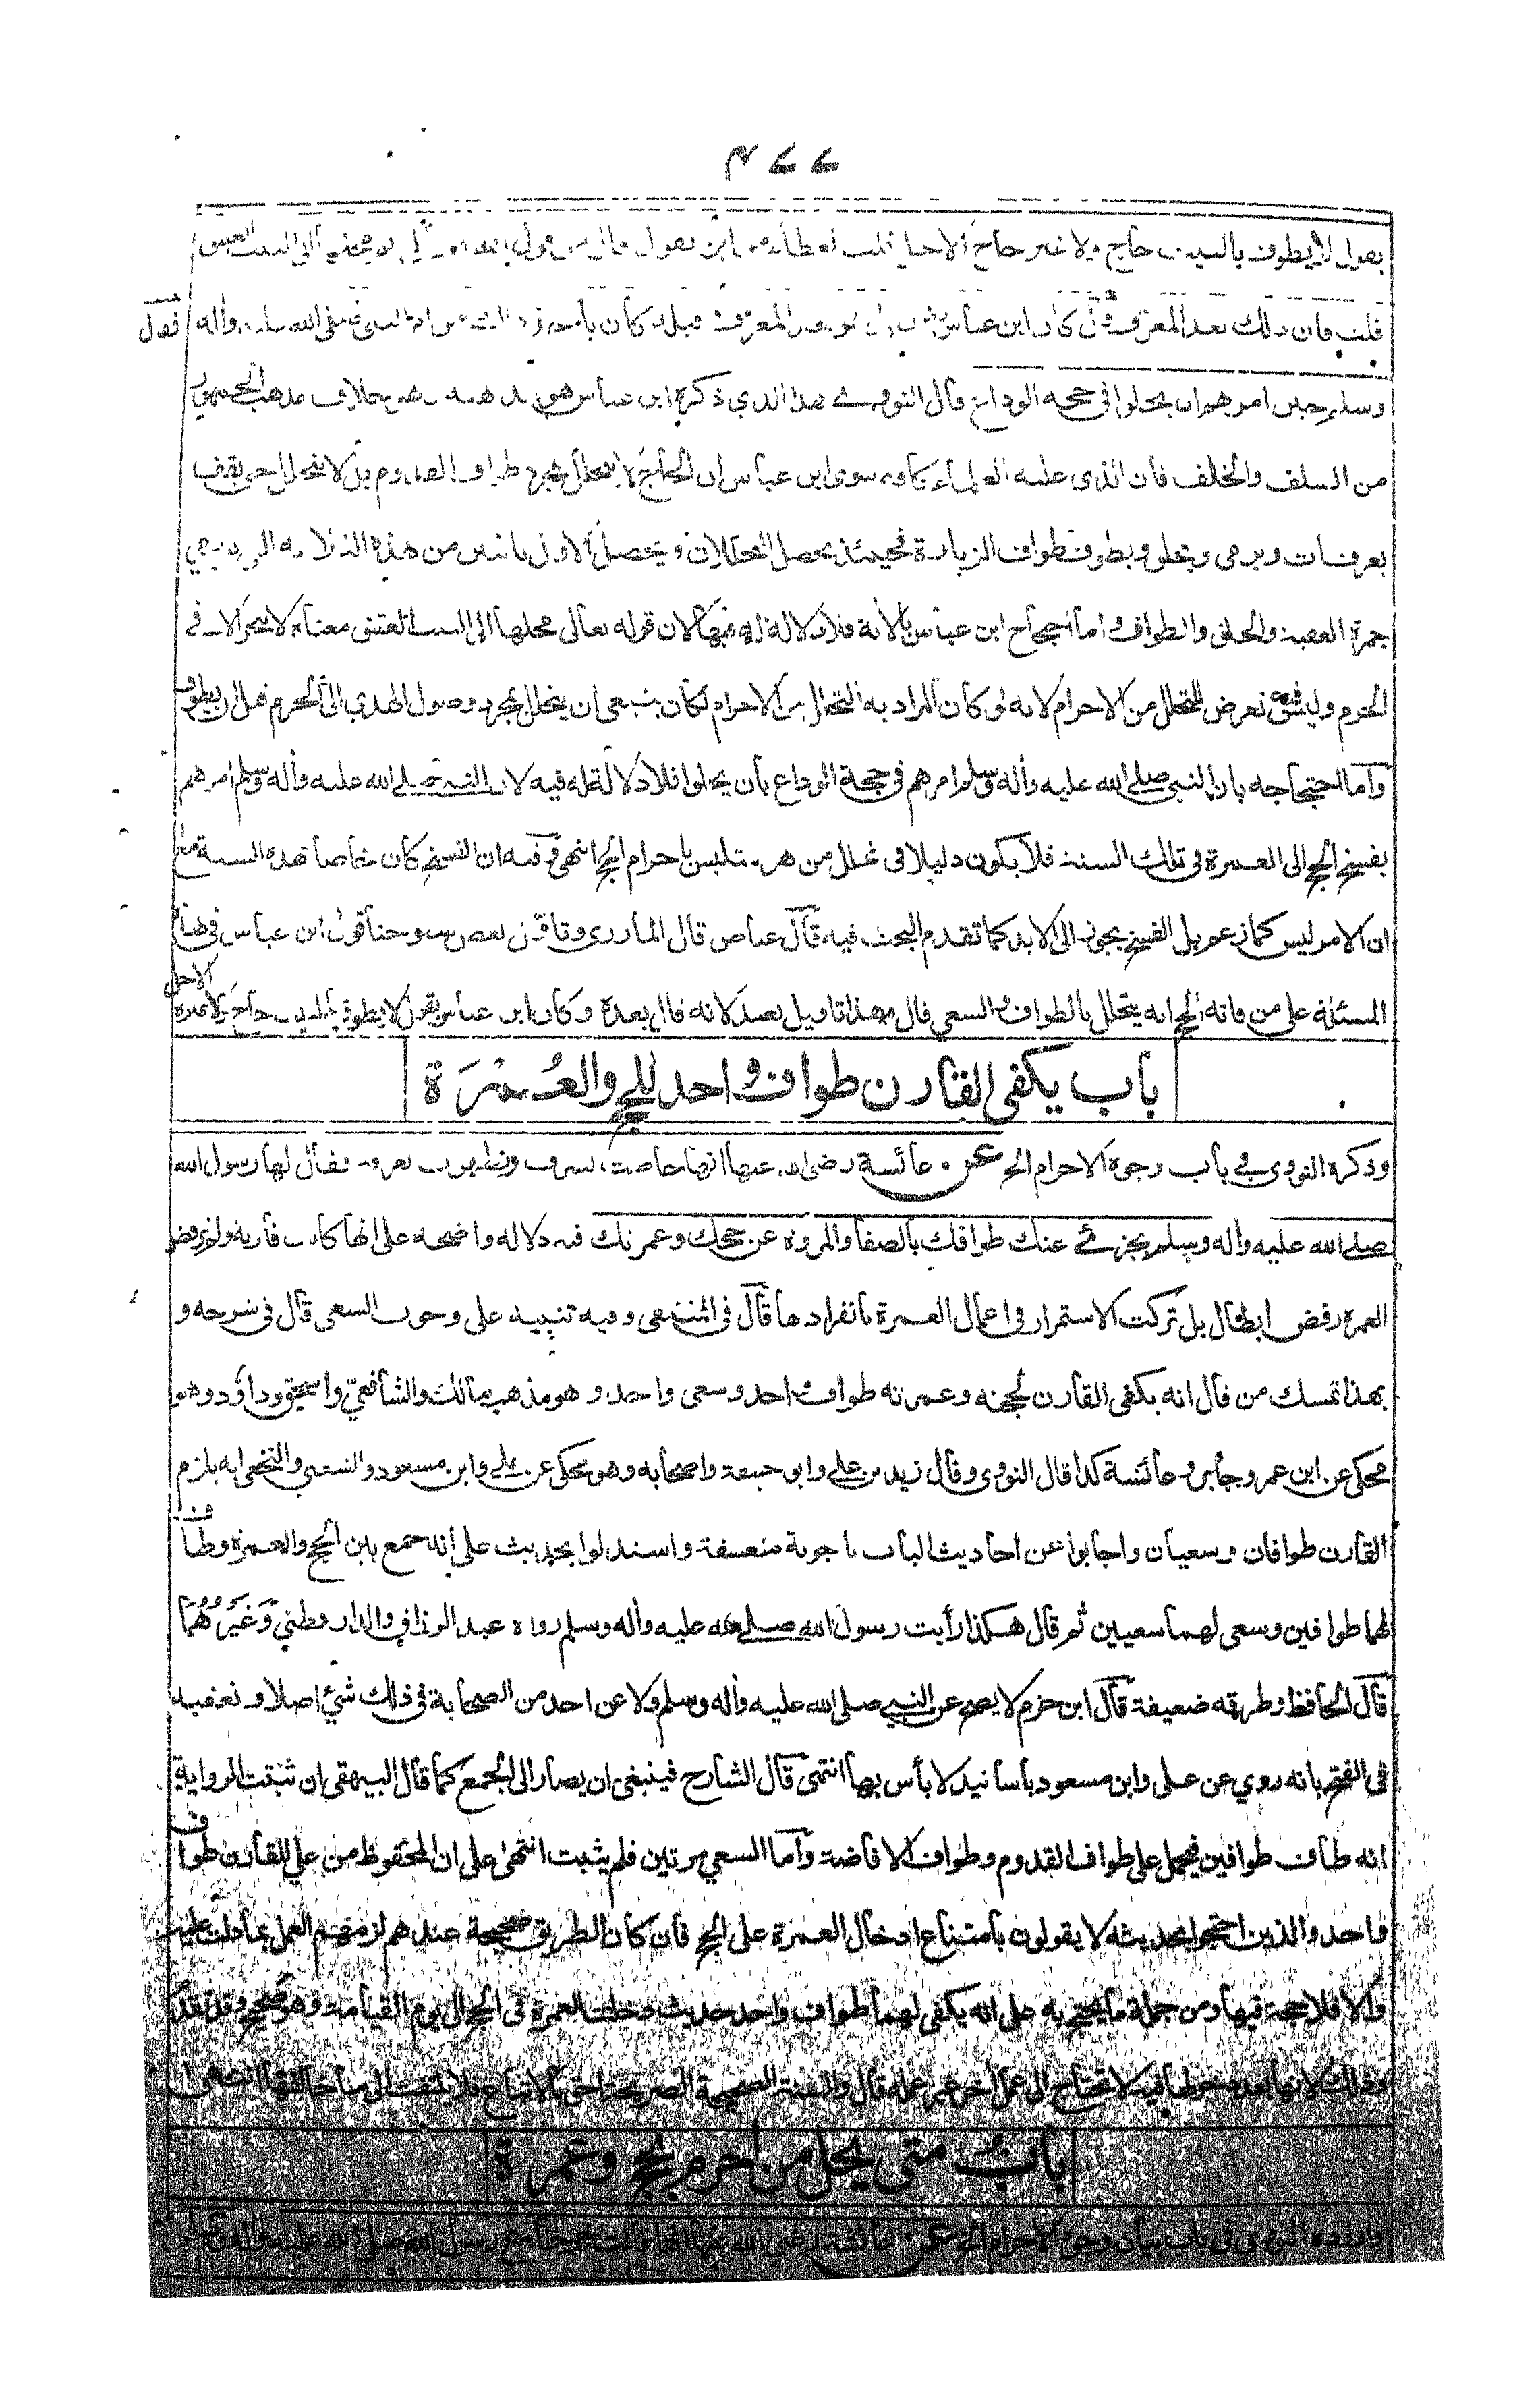 ٤٧٧
يقول لا يطوف بالبيت حاج ولا غير حاج الاحل قلت لعطاء من اين يقول ذلك قال من قول الله ثم محلها الى البيت العتيق
قلت فان ذلك بعد المعرف فقال كان ابن عباس يقول هو بعد المعرف وقبله كان يأخذ ذلك من امر النبى صلى الله عليه وأله
وسلم حين امرهم ان يحلوا فى حجة الوداع قال النووي هذا الذي ذكره ابن عباس هو مذهبه وهو خلاف مذهب الجمهور
من السلف والخلف فان الذى عليه العلماء كافة سوى ابن عباس ان الحاج لا يتحلل بمجرد طواف القدوم بل لا يتحلل حتى يقف
بعرفات ويرمى ويحلق ويطوف طواف الزيارة فحينئذ يحصل التحللان ويحصل الاول باثنين من هذه الثلاثة التى هى رمي
جمرة العقبة والحلق والطواف واما احتجاج ابن عباس بالأية فلا دلالة له فيها لان قوله تعالى محلها الى البيت العتيق معناه لا تنحر الا فى
الحرم وليس فيه تعرض للتحلل من الاحرام لانه لو كان المراد به التحلل من الاحرام لكان ينبغى ان يتحلل بمجرد وصول الهدي الى الحرم قبل ان يطوف
وأما احتجاجه بان النبى صلى الله عليه وأله وسلم امرهم فى حجة الوداع بأن يحلوا فلا دلالة له فيه لان النبى صلى الله عليه وأله وسلم امرهم
بفسخ الحج الى العمرة فى تلك السنة فلا يكون دليلا فى تحلل من هو متلبس بإحرام الحج انتهى وفيه ان الفسخ كان خاصا بهذه السنة مع
ان الامر ليس كما زعم بل الفسخ يجوز الى الابد كما تقدم البحث فيه قال عياض قال المازرى وتأول بعض شيوخنا قول ابن عباس فى هذه
المسئلة على من فاته الحج انه يتحلل بالطواف والسعي قال وهذا تاويل بعيد لانه قال بعده وكان ابن عباس يقول لا يطوف بالبيت حاج ولا غيره الاحل
باب يكفى القارن طواف واحد للحج والعمرة
وذكره النووى فى باب وجوه الاحرام الخ عن عائشة رضى الله عنها انها حاضت بسرف وتطهرت بعرفة فقال لها رسول الله
صلى الله عليه وأله وسلم يجزئ عنك طوافك بالصفا والمروة عن حجك وعمرتك فيه دلالة واضحة على انها كانت قارنة ولم ترفض
العمرة رفض ابطال بل تركت الاستمرار فى اعمال العمرة بانفرادها قال فى المنتقى وفيه تنبيه على وجوب السعى قال فى شرحه و
بهذا تمسك من قال انه يكفى القارن لحجته وعمرته طواف واحد وسعى واحد وهو مذهب مالك والشافعي واسحق وداؤد وهو
محكى عن ابن عمر وجابر وعائشة كذا قال النووى وقال زيد بن على وابو حنيفة واصحابه وهو محكى عن على وابن مسعود والشعبي والنخعى انه يلزم
القارن طوافان وسعيان واجابوا عن احاديث الباب باجوبة متعسفة واستدلوا بحديث على انه جمع بين الحج والعمرة وطاف
لهما طوافين وسعى لهما سعيين ثم قال هكذا رأيت رسول الله صلى الله عليه وأله وسلم رواه عبد الرزاق والدار قطني وغيرهما
قال الحافظ وطرقه ضعيفة قال ابن حزم لا يصح عن النبي صلى الله عليه وأله وسلم ولا عن احد من الصحابة فى ذلك شئ اصلا وتعقبه
فى الفتح بانه روي عن على وابن مسعود بأسانيد لا بأس بها انتهى قال الشارح فينبغى ان يصار الى الجمع كما قال البيهقى ان ثبتت الرواية
انه طاف طوافين فيحمل على طواف القدوم وطواف الافاضة وأما السعي مرتين فلم يثبت انتهى على ان المحفوظ من علي للقارن طواف
واحد والذين احتجوا بحديثه لا يقولون بأمتناع ادخال العمرة على الحج فان كان الطريق صحيحة عندهم لزمهم العمل بما دلت عليه
والا فلا حجة فيها ومن جملة ما يحتج به على انه يكفى لهما طواف واحد حديث دخلت العمرة فى الحج الى يوم القيامة وهو صحيح وقد تقدم
وذلك لانها بعد دخولها فيه لا تحتاج الى عمل أخر غير عمله قال والسنة الصحيحة الصريحة احق بالاتباع فلا يلتفت الى ما خالفها انتهى
باب متى يحل من احرم بحج وعمرة
واورده النووي فى باب بيان وجوه الاحرام الخ عن عائشة رضى الله عنها انها قالت خرجنا مع رسول الله صلى الله عليه وأله وسلم